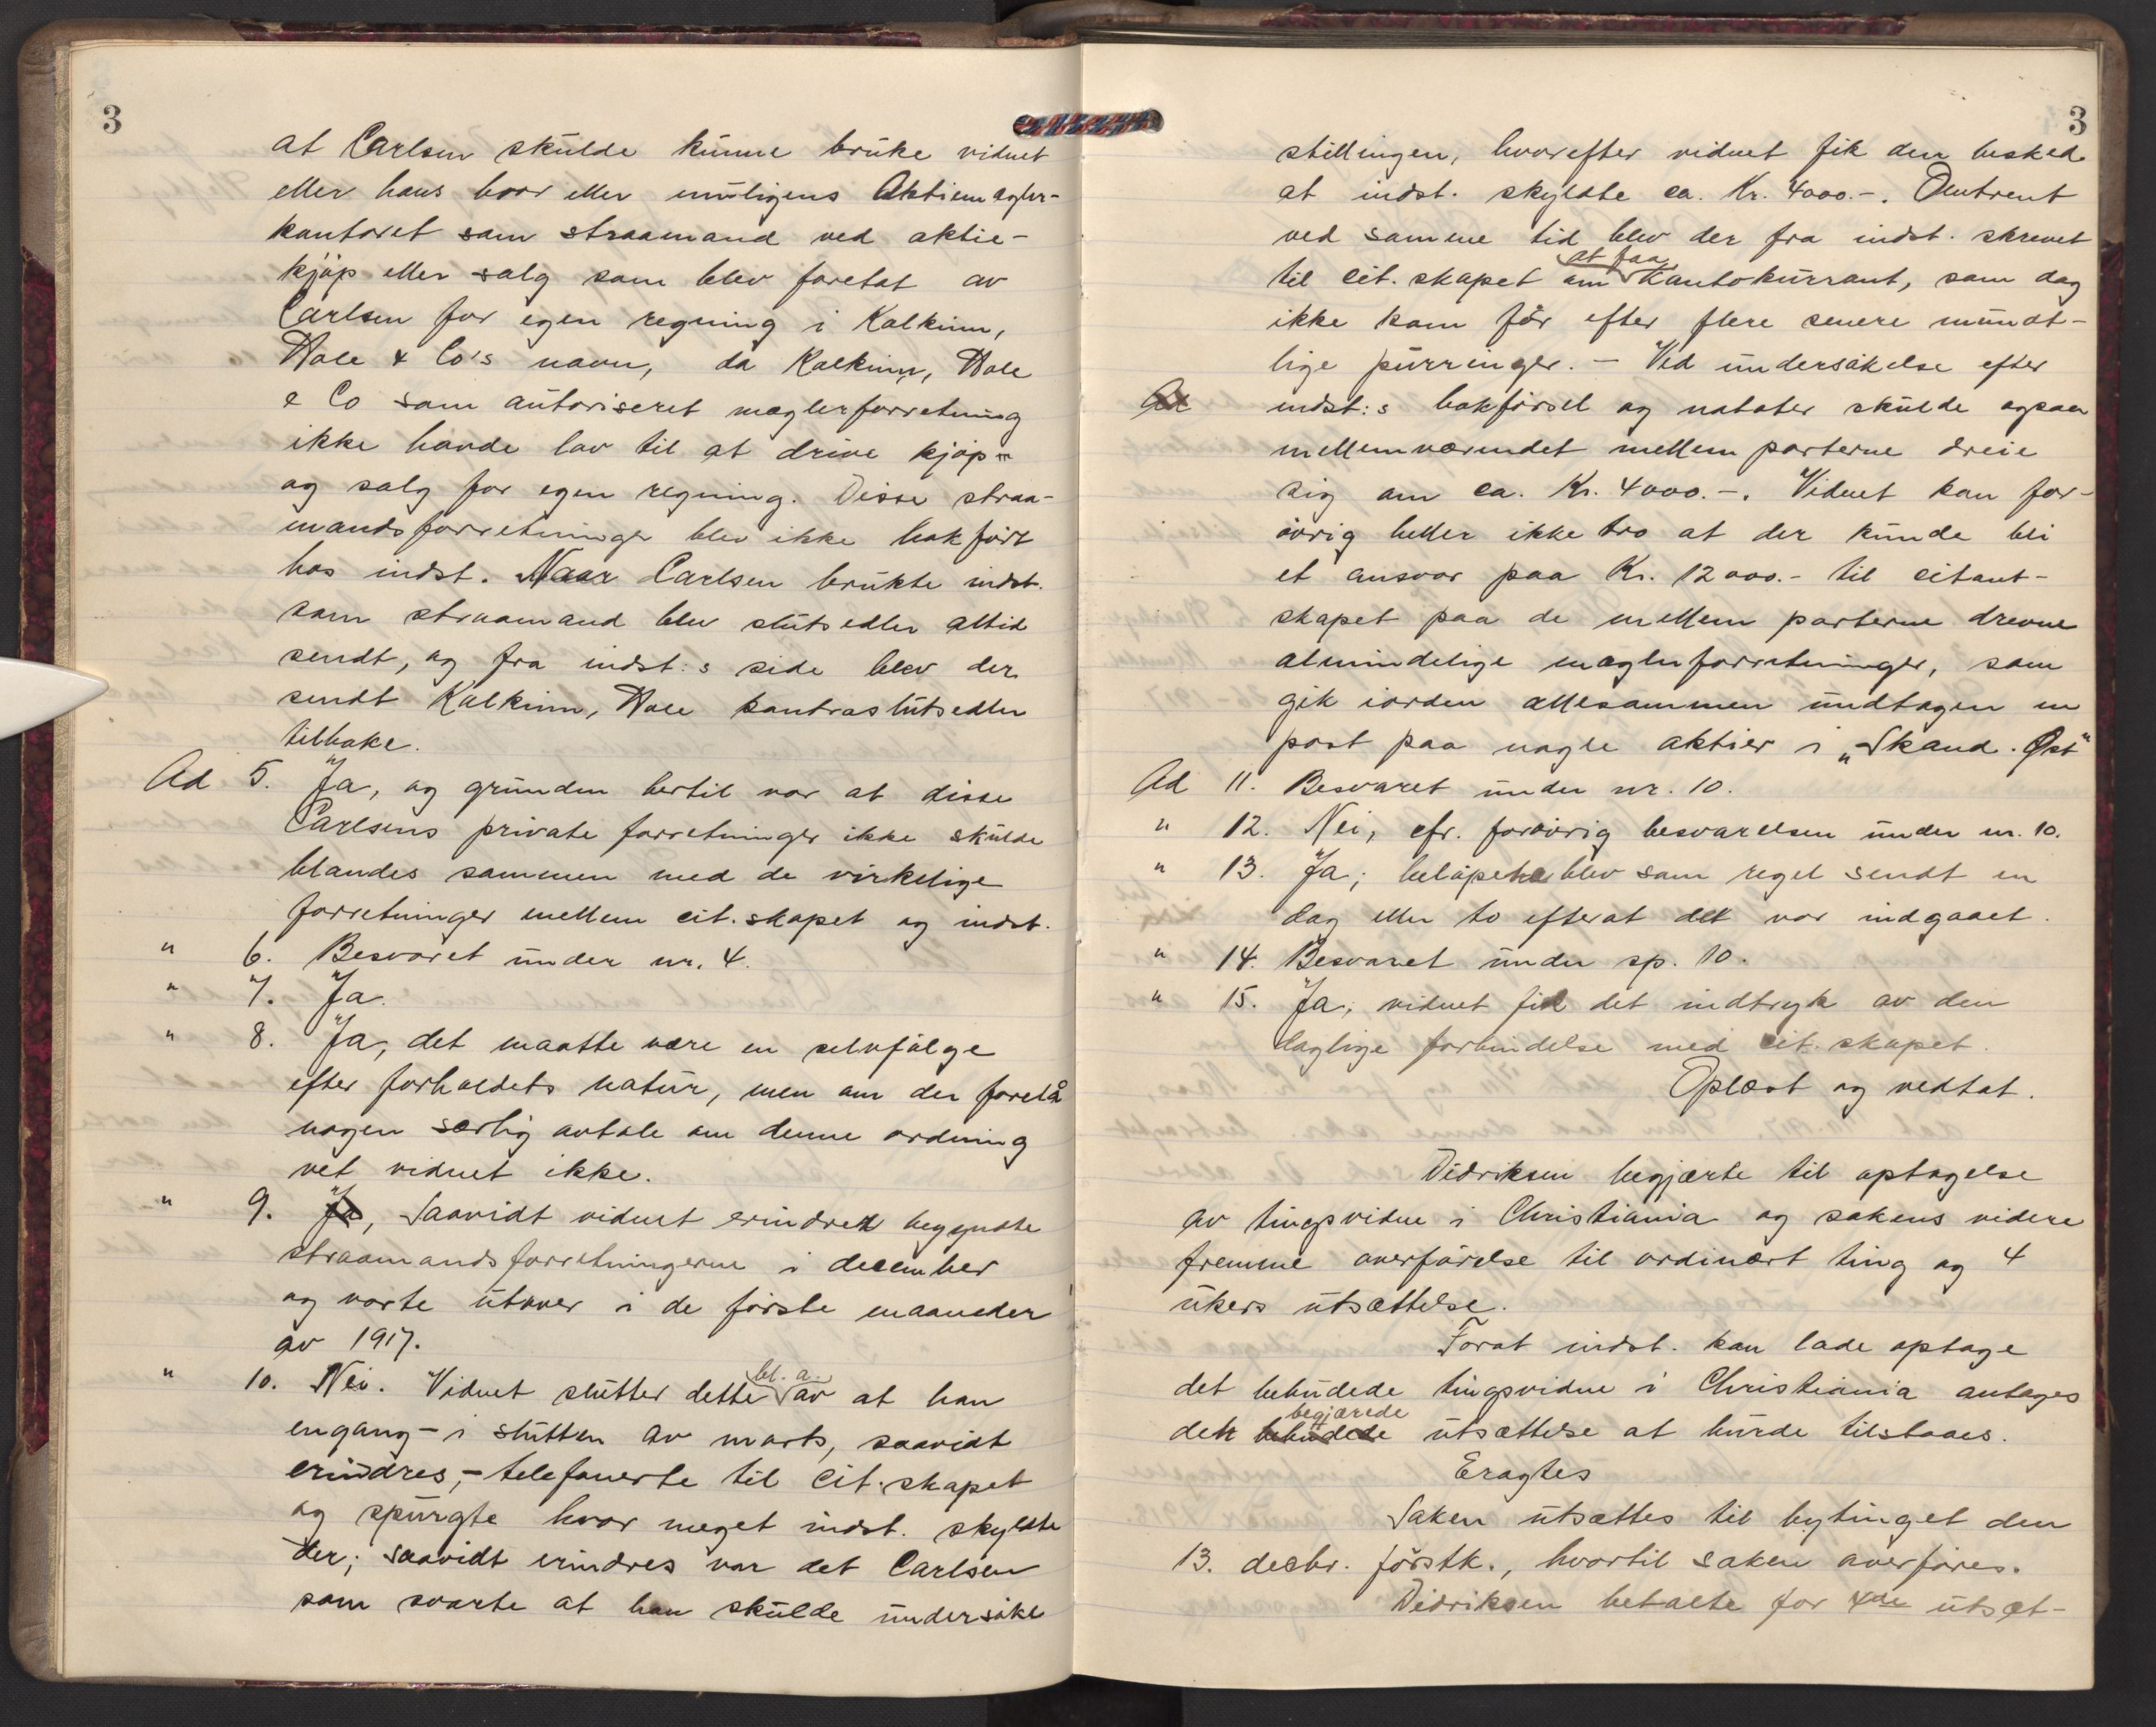 3
at Carlsen skulde kunne bruke vidnet
eller hans bror eller muligens Aktiemægler-
kontoret som straamand ved aktie-
kjøp eller salg som blev foretat av
Carlsen for egen regning i Kalkinn,
Hole & Co's navn, da Kalkinn, Hole
& Co som autoriseret mæglerforretning
ikke havde lov til at drive kjøp-
og salg for egen regning. Disse straa-
mandsforretninger blev ikke bokført
hos indst. Naar Carlsen brukte indst.
som straamand blev slutsedler altid
sendt, og fra indst:s side blev der
sendt Kalkinn, Hole kontraslutsedler
tilbake.
Ad 5. Ja, og grunden hertil var at disse
Carlsens private forretninger ikke skulde
blandes sammen med de virkelige
forretninger mellem cit.skapet og indst.
" 6. Besvaret under nr. 4.
" 7. Ja.
" 8. Ja, det maatte være en selvfølge
efter forholdets natur, men om der forelå
nogen særlig avtale om denne ordning
vet vidnet ikke.
" 9. Ja, Saavidt vidnet erindrer begyndte
straamandsforretningerne i december
og varte utover i de første maaneder
av 1917.
" 10. Nei. Vidnet slutter dette bl. a. av at han
engang - i slutten av marts, saavidt
erindres, - telefonerte til cit.skapet
og spurgte hvor meget indst. skyldte
der; saavidt erindres var det Carlsen
som svarte at han skulde undersøke
3
stillingen, hvorefter vidnet fik den besked
at indst. skyldte ca. Kr. 4000.-. Omtrent
ved samme tid blev der fra indst. skrevet
til cit.skapet om at faa Kontokurrant, som dog
ikke kom før efter flere senere mundt-
lige purringer. - Ved undersøkelse efter
Ad indst:s bokførsel og notater skulde ogsaa
mellemværendet mellem parterne dreie
sig om ca. Kr. 4000.-. Vidnet kan for-
øvrig heller ikke tro at der kunde bli
et ansvar paa Kr. 12000.- til citant-
skapet paa de mellem parterne drevne
almindelige mæglerforretninger, som
gik iorden allesammen undtagen en
post paa nogle aktier i "Skand. Øst"
Ad 11. Besvaret under nr. 10.
" 12. Nei, cfr. forøvrig besvarelsen under nr. 10.
" 13. Ja; beløpene blev som regel sendt en
dag eller to efterat det var indgaaet.
" 14. Besvaret under sp. 10.
" 15. Ja, vidnet fik det indtryk av den
daglige forbindelse med cit.skapet.
Oplæst og vedtat.
Didriksen begjærte til optagelse
av tingsvidne i Christiania og sakens videre
fremme overførelse til ordinært ting og 4
ukers utsættelse.
Forat indst. kan lade optage
det bebudede tingsvidne i Christiania antages
den bebudede begjærede utsættelse at burde tilstaaes.
Eragtes
Saken utsættes til bytinget den
13. decbr. førstk., hvortil saken overføres.
Didriksen betalte for 4de utsæt-